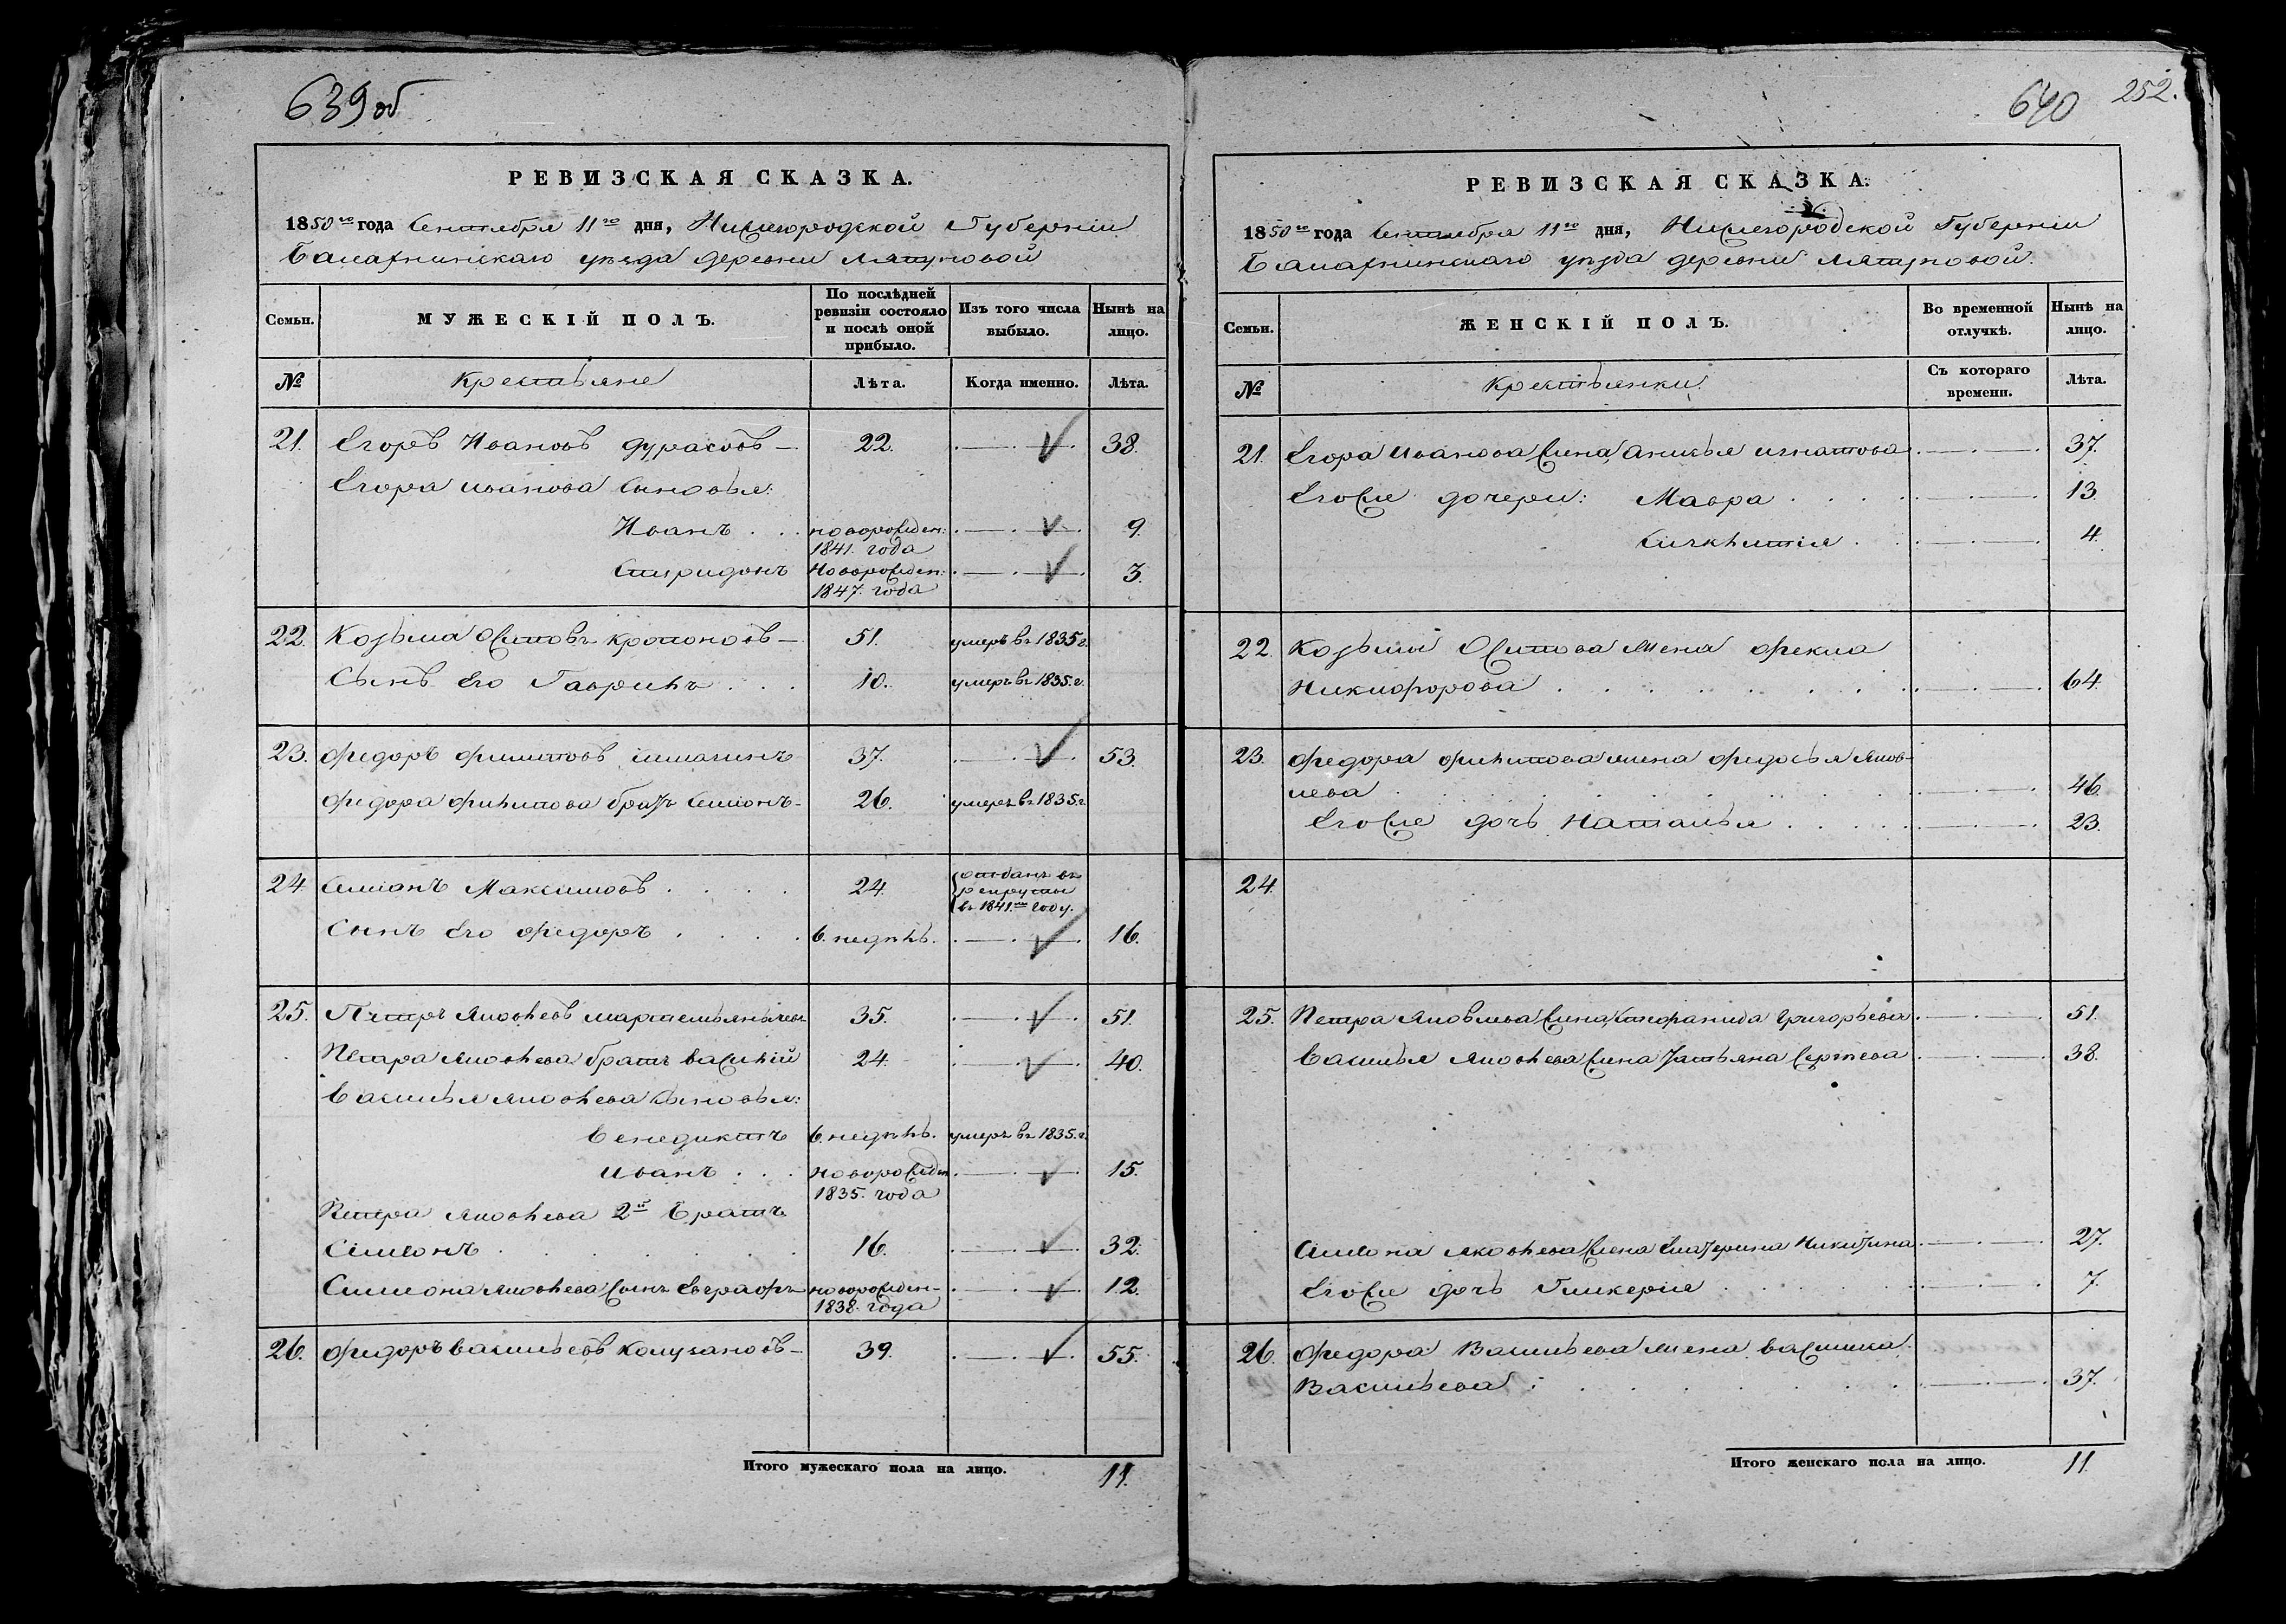 639 об
РЕВИЗСКАЯ СКАЗКА.
1850го года Сентября 11го дня, Нижегородской Губернiи
Балахнинскаго уѣзда деревни Ляпуновой
Семьи.
МУЖЕСКIЙ ПОЛЪ.
По послѣдней ревизiи состояло и послѣ оной прибыло.
Изъ того числа выбыло.
Нынѣ на лицо.
№
Крестьяне
Лѣта.
Когда именно.
Лѣта.
21. Егоръ Ивановъ Дурасовъ 22. 38.
Егора Иванова Сыновья:
Иванъ новорожден: 1841. года 9.
Спиридонъ Новорожден: 1847. года 3.
22. Козьма Осиповъ 51. умеръ въ 1835 г.
Сынъ Его Гаврилъ 10. умеръ въ 1835. г.
23. Федоръ Филиповъ 37. 53.
Федора Филипова братъ Симiонъ 26. умеръ въ 1835. г.
24 Симiонъ Максимовъ 24. отданъ въ рекруты въ 1841.мъ году.
Сынъ Его Федоръ 6. недѣль. 16.
25. Петръ Яковлевъ 35. 51.
Петра Яковлева братъ Василiй 24. 40.
Василья Яковлева Сыновья:
Венедиктъ 6. недѣль. умеръ въ 1835. г.
Иванъ Новорожден 1835. года 15.
Петра Яковлева 2й Братъ
Симiонъ 16. 32.
Симиона Яковлева Сынъ Евграфъ новорожден 1838. года 12.
26. Федоръ Васильевъ 39. 55.
Итого мужескаго пола на лицо. 11.
640 252.
РЕВИЗСКАЯ СКАЗКА.
1850го года Сентября 11го дня, Нижегородской Губернiи
Балахнинскаго уѣзда деревни Ляпуновой.
Семьи.
ЖЕНСКIЙ ПОЛЪ.
Во временной отлучкѣ.
Нынѣ на лицо.
№
Крестьянки
Съ котораго времени.
Лѣта.
21. Егора Иванова Жена Анисья Игнатова 37.
Егоже дочери: Мавра 13.
4.
22. Козьмы Осипова Жена Фекла
Никифорова 64.
23. Федора Филипова жена Федосья Яков-
лева 46.
Егоже дочь Наталья 23.
24.
25. Петра Яковлева Жена Степанида Григорьева 51.
Василья Яковлева Жена Татьяна Сергеева 38.
Симиона Яковлева Жена Екатерина Никитина 27.
Егоже дочь Гликерiя 7.
26. Федора Васильева Жена Василиса
Васильева 37.
Итого женскаго пола на лицо. 11.